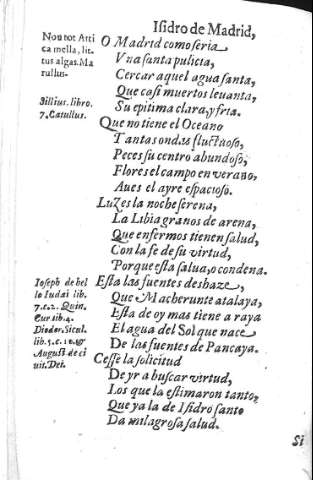 Isidro de Madrid,
Non tot Atti
ca mella, lit-
tus algas. Ma
rullus.
O Madrid como seria
Vna santa pulicia,
Cercar aquel agua santa,
Que casi muertos leuanta,
Su epitima clara, y fria.
Sillius. libro.
7. Catullus.
Que no tiene el Oceano
Tantas ondas fluctuoso,
Peces su centro abundoso,
Flores el campo en verano,
Aues el ayre espacioso.
Luzes la noche serena,
La Libia granos de arena,
Que enfermos tienen salud,
Con la fe de su virtud,
Porque esta salua, o condena.
Ioseph de bel
lo Iudai lib.
7. c. 2. Quin.
Cur lib. 4.
Diodor. Sicul.
lib. 5. c. 10. &
August. de ci
uit. Dei.
Esta las fuentes deshaze,
Que Macherunte atalaya,
Esta de oy mas tiene a raya
El agua del Sol que nace
De las fuentes de Pancaya.
Cesse la solicitud
De yr a buscar virtud,
Los que la estimaron tanto,
Que ya la de Isidro santo
Da milagrosa salud.
Si